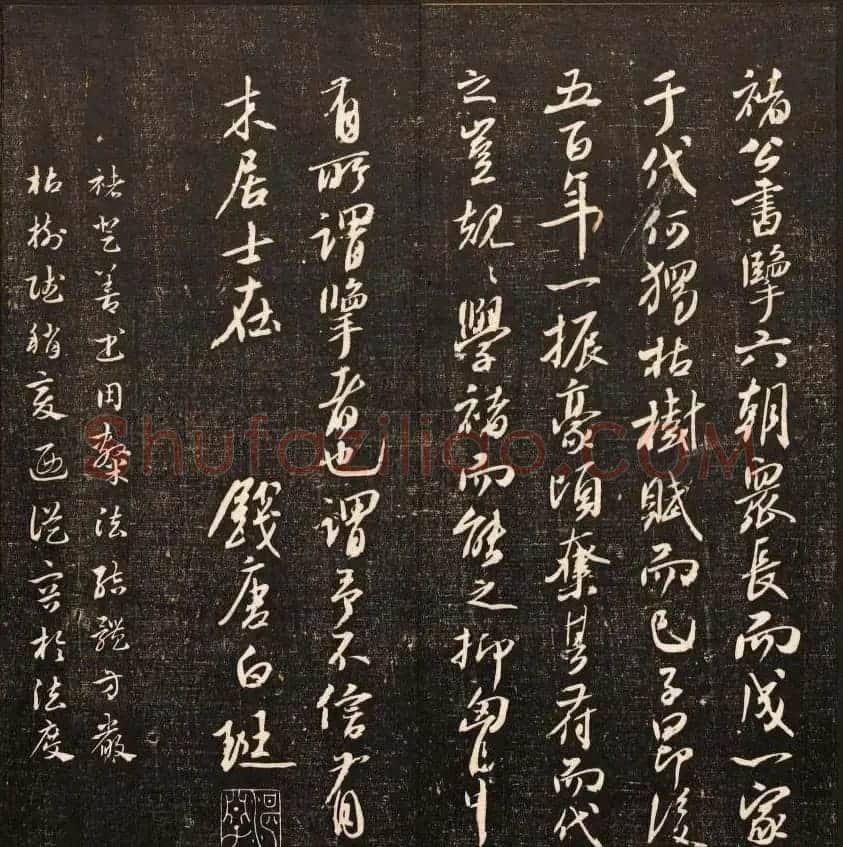 褚公書擥六朝衆長而成一家
于代何獨枯樹賦而已子昂後
五百年一振豪頃奪其苻而代
之豈規〻學褚而能之抑匈中
有所謂擥者也謂予不信有
末居士在 錢唐白珽
褚登善書用隸法結體方嚴
枯樹賦稍変從容於法度
Shufaziliao.COM